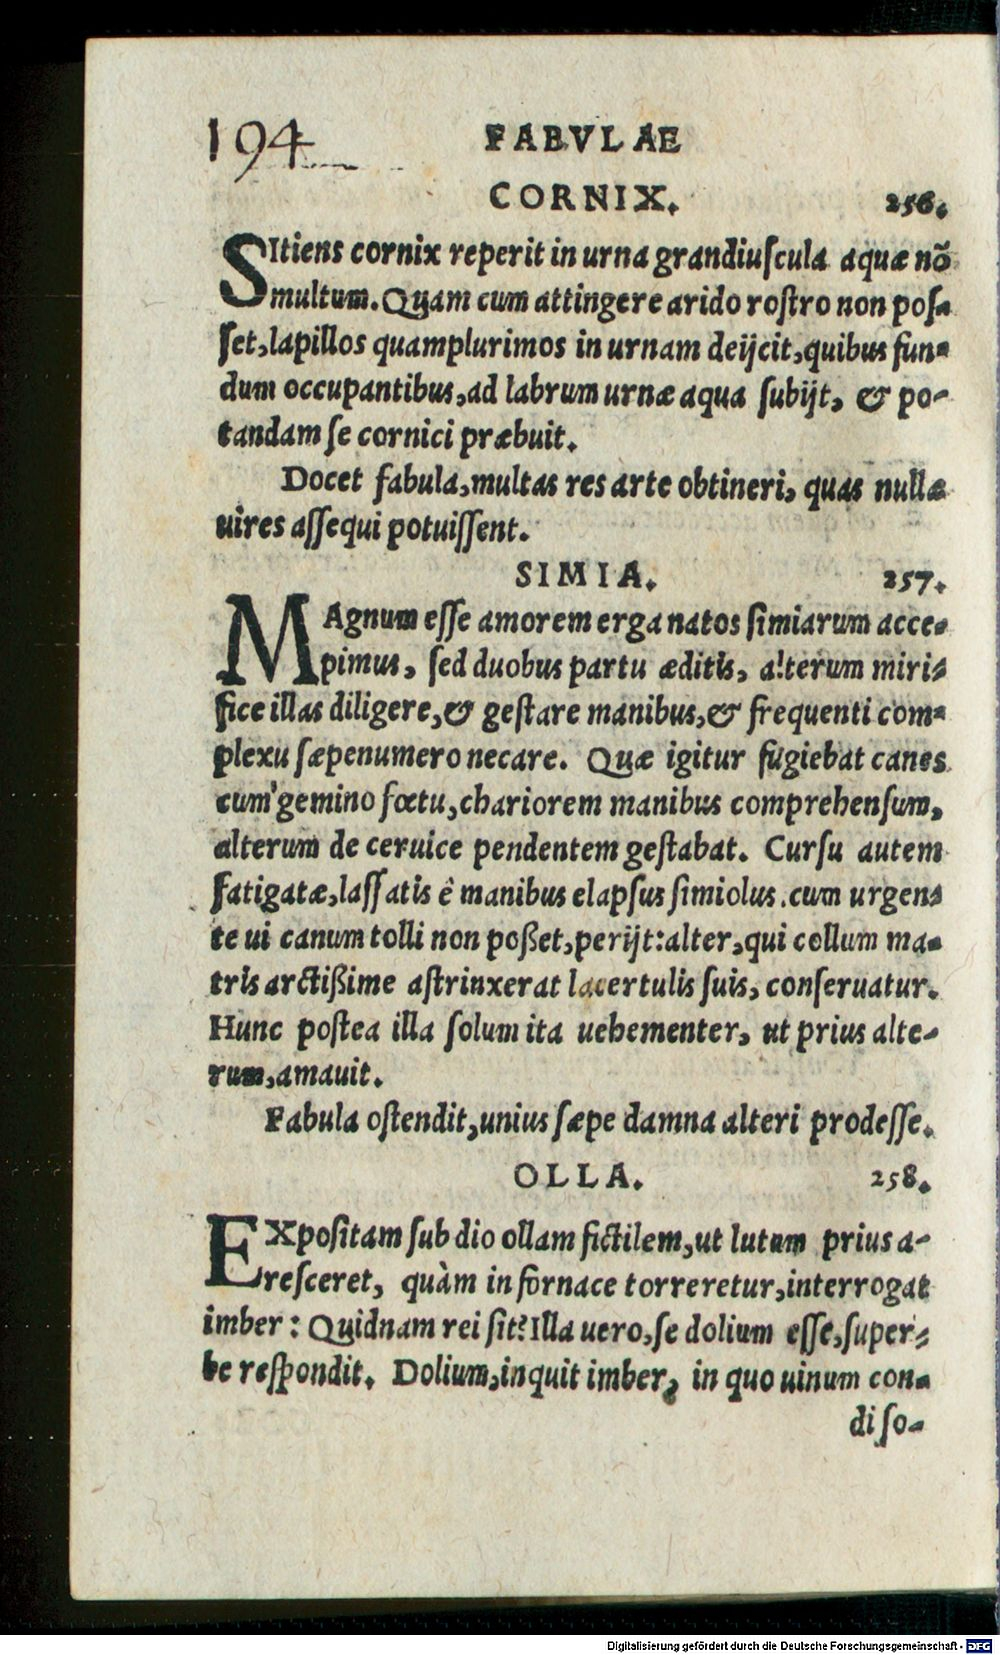 194
FABVLAE
CORNIX. 256.
SItiens cornix reperit in urna grandiuſcula aquæ nō
multum. Quam cum attingere arido roſtro non poſ-
ſet, lapillos quamplurimos in urnam deijcit, quibus fun-
dum occupantibus, ad labrum urnæ aqua ſubijt, & po-
tandam ſe cornici præbuit.
Docet fabula, multas res arte obtineri, quas nullæ
uires aſſequi potuiſſent.
SIMIA. 257.
MAgnum eſſe amorem erga natos ſimiarum acce-
pimus, ſed duobus partu æditis, alterum miri-
fice illas diligere, & geſtare manibus, & frequenti com-
plexu ſæpenumero necare. Quæ igitur fugiebat canes
cum gemino fœtu, chariorem manibus comprehenſum,
alterum de ceruice pendentem geſtabat. Curſu autem
fatigatæ, laſſatis ê manibus elapſus ſimiolus. cum urgen-
te ui canum tolli non poßet, perijt: alter, qui collum ma-
tris arctißime aſtrinxerat lacertulis ſuis, conſeruatur.
Hunc poſtea illa ſolum ita uehementer, ut prius alte-
rum, amauit.
Fabula oſtendit, unius ſæpe damna alteri prodeſſe.
OLLA. 258.
EXpoſitam ſub dio ollam fictilem, ut lutum prius a-
reſceret, quàm in fornace torreretur, interrogat
imber: Quidnam rei ſit? Illa uero, ſe dolium eſſe, ſuper-
be reſpondit. Dolium, inquit imber, in quo uinum con-
di ſo-
Digitalisierung gefördert durch die Deutsche Forschungsgemeinschaft - DFG